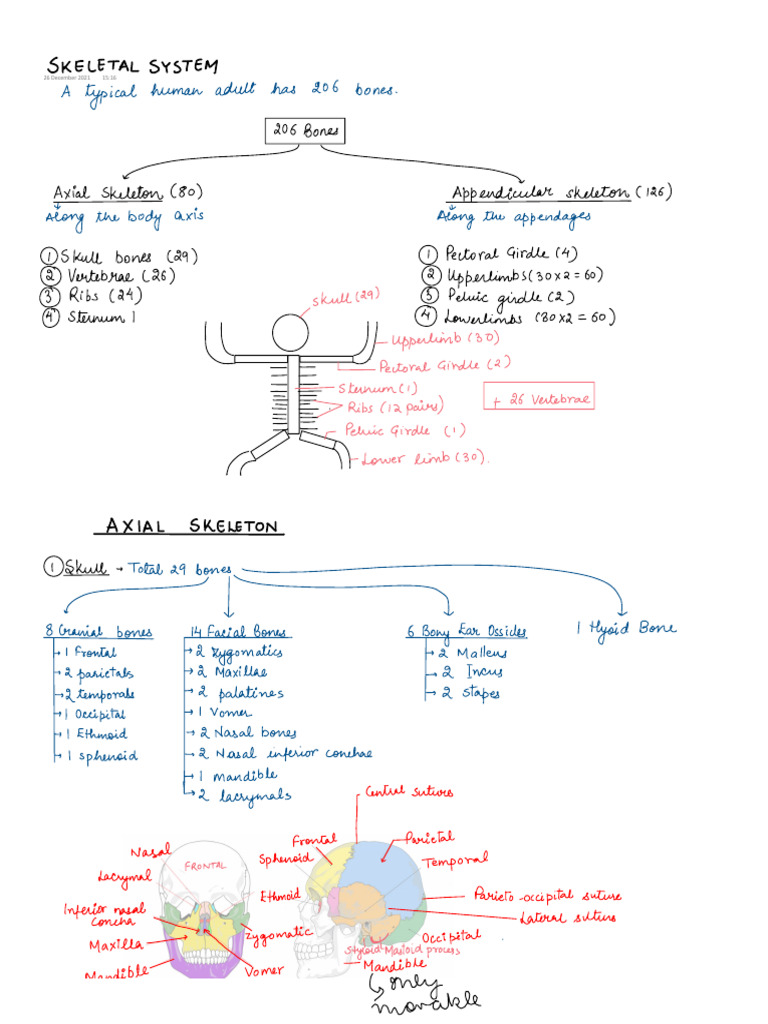 SKELETAL SYSTEM
26 December 2021 15:16
A typical human adult has 206 bones.
206 Bones
Axial Skeleton (80)
Along the body axis
① Skull bones (29)
② Vertebrae (26)
③ Ribs (24)
④ Sternum 1
Appendicular skeleton (126)
Along the appendages
① Pectoral Girdle (4)
② Upperlimbs (30x2=60)
③ Pelvic girdle (2)
④ Lowerlimbs (30x2=60)
Skull (29)
Upperlimb (30)
Pectoral Girdle (2)
Sternum (1)
Ribs (12 pairs)
+ 26 Vertebrae
Pelvic Girdle (1)
Lower limb (30).
AXIAL SKELETON
① Skull → Total 29 bones
8 Cranial bones
→ 1 Frontal
→ 2 parietals
→ 2 temporals
→ 1 Occipital
→ 1 Ethmoid
→ 1 sphenoid
14 Facial Bones
→ 2 zygomatics
→ 2 Maxillae
→ 2 palatines
→ 1 Vomer
→ 2 Nasal bones
→ 2 Nasal inferior conchae
→ 1 mandible
→ 2 lacrymals
6 Bony Ear Ossides
→ 2 Malleus
→ 2 Incus
→ 2 stapes
1 Hyoid Bone
Nasal
Lacrymal
Inferior nasal
concha
Maxilla
Mandible
FRONTAL
Zygomatic
Vomer
Central sutures
Frontal
Sphenoid
Ethmoid
Parietal
Temporal
Parieto-occipital suture
Lateral suture
Occipital
Styloid Mastoid process
Mandible
only
movable